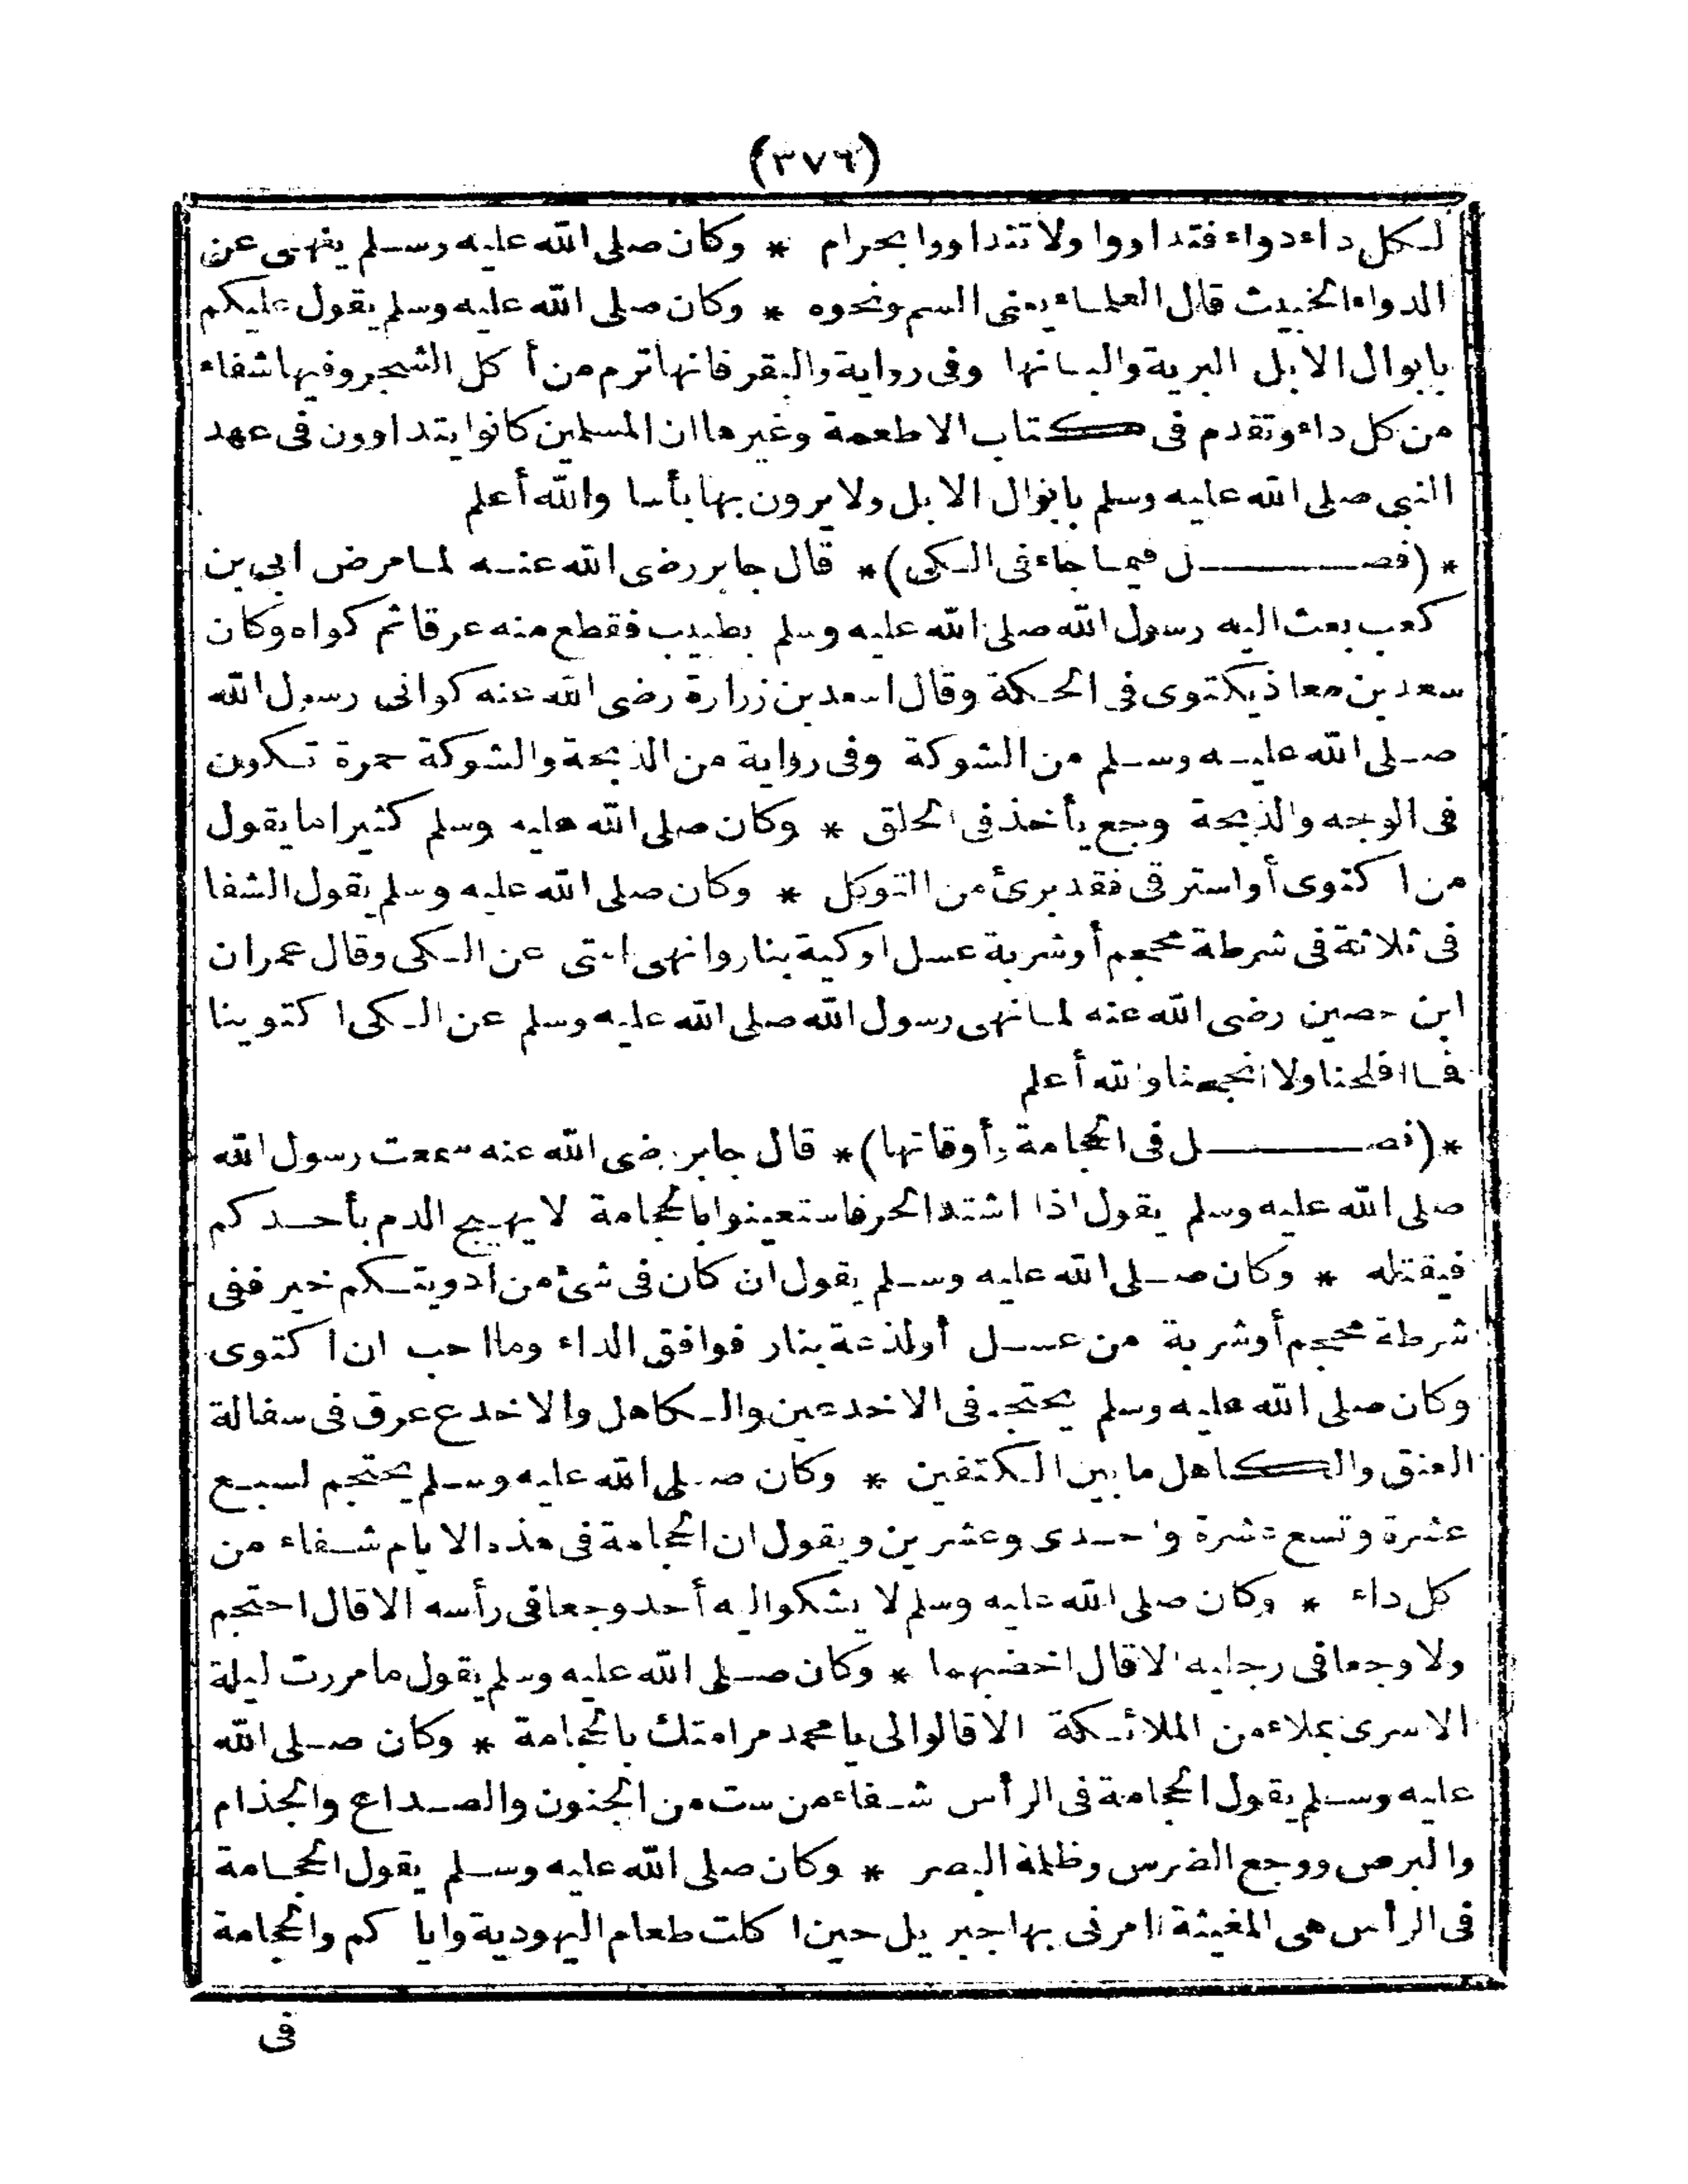 (٣٧٦)
لكل داء دواء فتداووا ولا تتداووا بحرام * وكان صلى الله عليه وسلم ينهى عن
الدواء الخبيث قال العلماء يعنى السم ونحوه * وكان صلى الله عليه وسلم يقول عليكم
بابوال الابل البرية والبانها وفى رواية والبقر فانها ترم من أ كل الشجر وفيها شفاء
من كل داء وتقدم فى كتاب الاطعمة وغيرها ان المسلمين كانوا يتداوون فى عهد
النبى صلى الله عليه وسلم بابوال الابل ولا يرون بها بأسا والله أعلم
* (فصل فيما جاء فى الكى) * قال جابر رضى الله عنه لما مرض ابى بن
كعب بعث اليه رسول الله صلى الله عليه وسلم بطبيب فقطع منه عرقا ثم كواه وكان
سعد بن معاذ يكتوى فى الحكة وقال اسعد بن زرارة رضى الله عنه كوانى رسول الله
صلى الله عليه وسلم من الشوكة وفى رواية من الذبحة والشوكة حمرة تكون
فى الوجه والذبحة وجع يأخذ فى الحلق * وكان صلى الله عليه وسلم كثيرا ما يقول
من اكتوى أو استرقى فقد برئ من التوكل * وكان صلى الله عليه وسلم يقول الشفا
فى ثلاثة فى شرطة محجم أو شربة عسل او كية بنار وانهى امتى عن الكى وقال عمران
ابن حصين رضى الله عنه لما نهى رسول الله صلى الله عليه وسلم عن الكى اكتوينا
فما افلحنا ولا انجحنا والله أعلم
* (فصل فى الحجامة وأوقاتها) * قال جابر رضى الله عنه سمعت رسول الله
صلى الله عليه وسلم يقول اذا اشتد الحر فاستعينوا بالحجامة لا يهيج الدم بأحدكم
فيقتله * وكان صلى الله عليه وسلم يقول ان كان فى شئ من ادويتكم خير ففى
شرطة محجم أو شربة من عسل أو لذعة بنار فوافق الداء وما احب ان اكتوى
وكان صلى الله عليه وسلم يحتجم فى الاخدعين والكاهل والاخدع عرق فى سفالة
العنق والكاهل ما بين الكتفين * وكان صلى الله عليه وسلم يحتجم لسبع
عشرة وتسع عشرة واحدى وعشرين ويقول ان الحجامة فى هذه الايام شفاء من
كل داء * وكان صلى الله عليه وسلم لا يشكو اليه أحد وجعا فى رأسه الا قال احتجم
ولا وجعا فى رجليه الا قال اخضبهما * وكان صلى الله عليه وسلم يقول ما مررت ليلة
الاسرى بملاء من الملائكة الا قالوا لى يا محمد مر امتك بالحجامة * وكان صلى الله
عليه وسلم يقول الحجامة فى الرأس شفاء من ست من الجنون والصداع والجذام
والبرص ووجع الضرس وظلمة البصر * وكان صلى الله عليه وسلم يقول الحجامة
فى الرأس هى المغيثة امرنى بها جبريل حين اكلت طعام اليهودية وايا كم والحجامة
فى